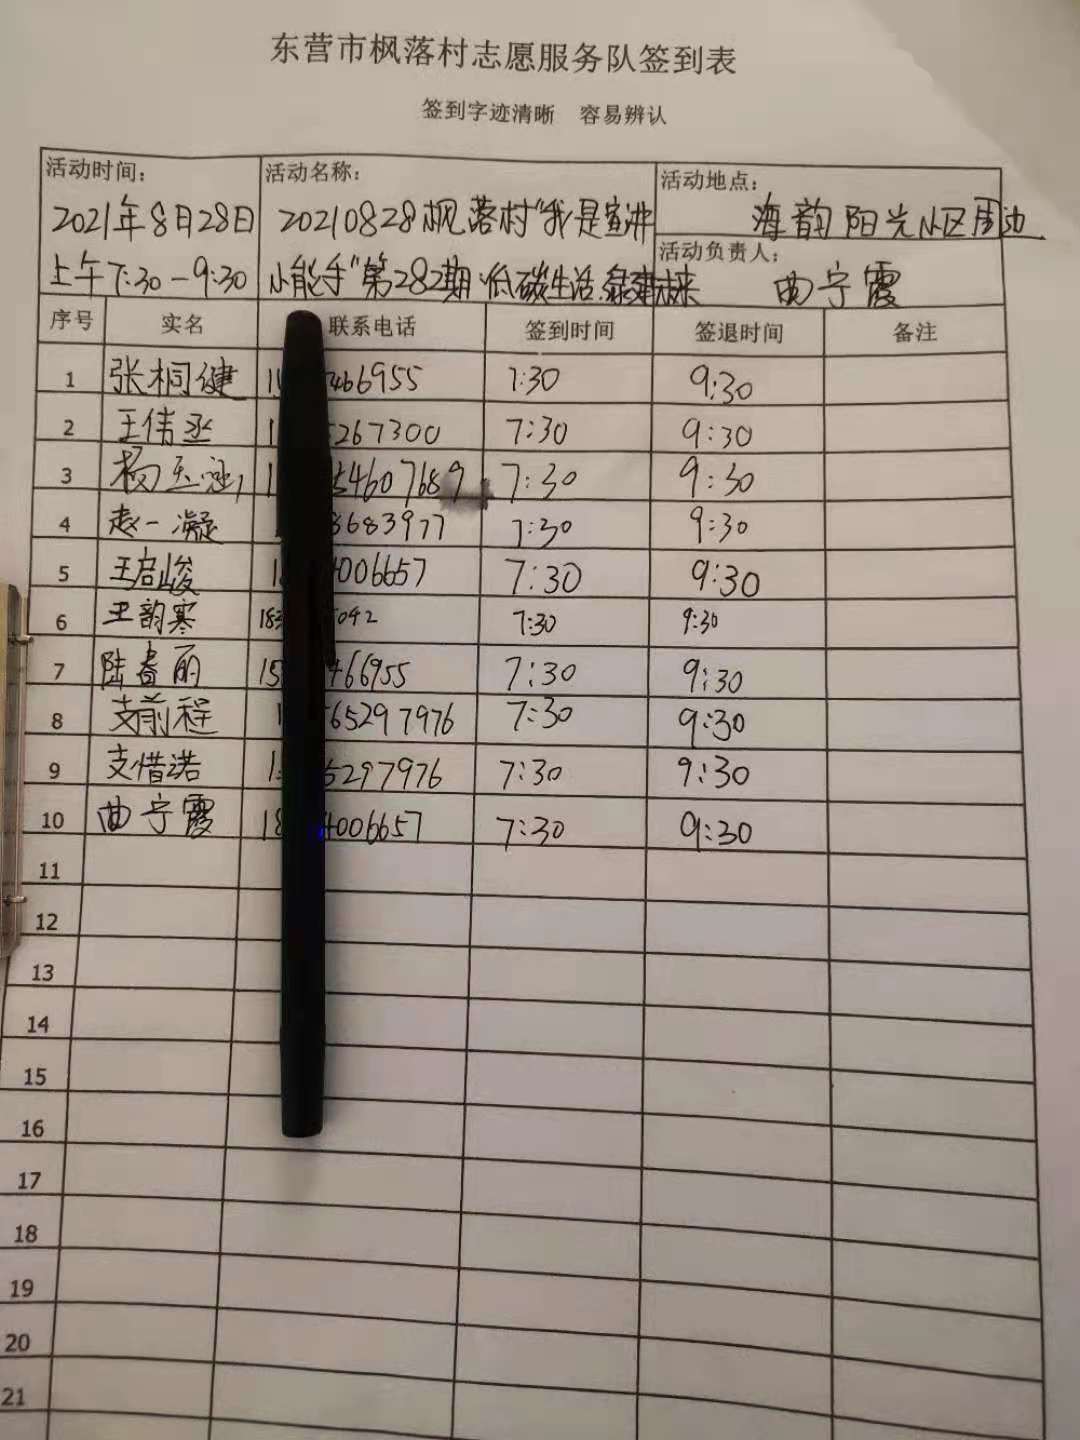 东营市枫落村志愿服务队签到表
签到字迹清晰 容易辨认
活动时间: 活动名称: 活动地点:
2021年8月28日 20210828枫落村"我是宣讲 海韵阳光小区周边
活动负责人:
上午7:30-9:30 小能手"第282期:低碳生活.绿建未来 曲宁霞
序号 实名 联系电话 签到时间 签退时间 备注
1 张桐健 466955 7:30 9:30
2 王伟丞 267300 7:30 9:30
3 杨玉 54607689 7:30 9:30
4 赵一凝 8683977 7:30 9:30
5 王启峻 4006657 7:30 9:30
6 王韵寒 183 042 7:30 9:30
7 陆春丽 15 466955 7:30 9:30
8 支前程 65297976 7:30 9:30
9 支惜诺 5297976 7:30 9:30
10 曲宁霞 18 4006657 7:30 9:30
11
12
13
14
15
16
17
18
19
20
21